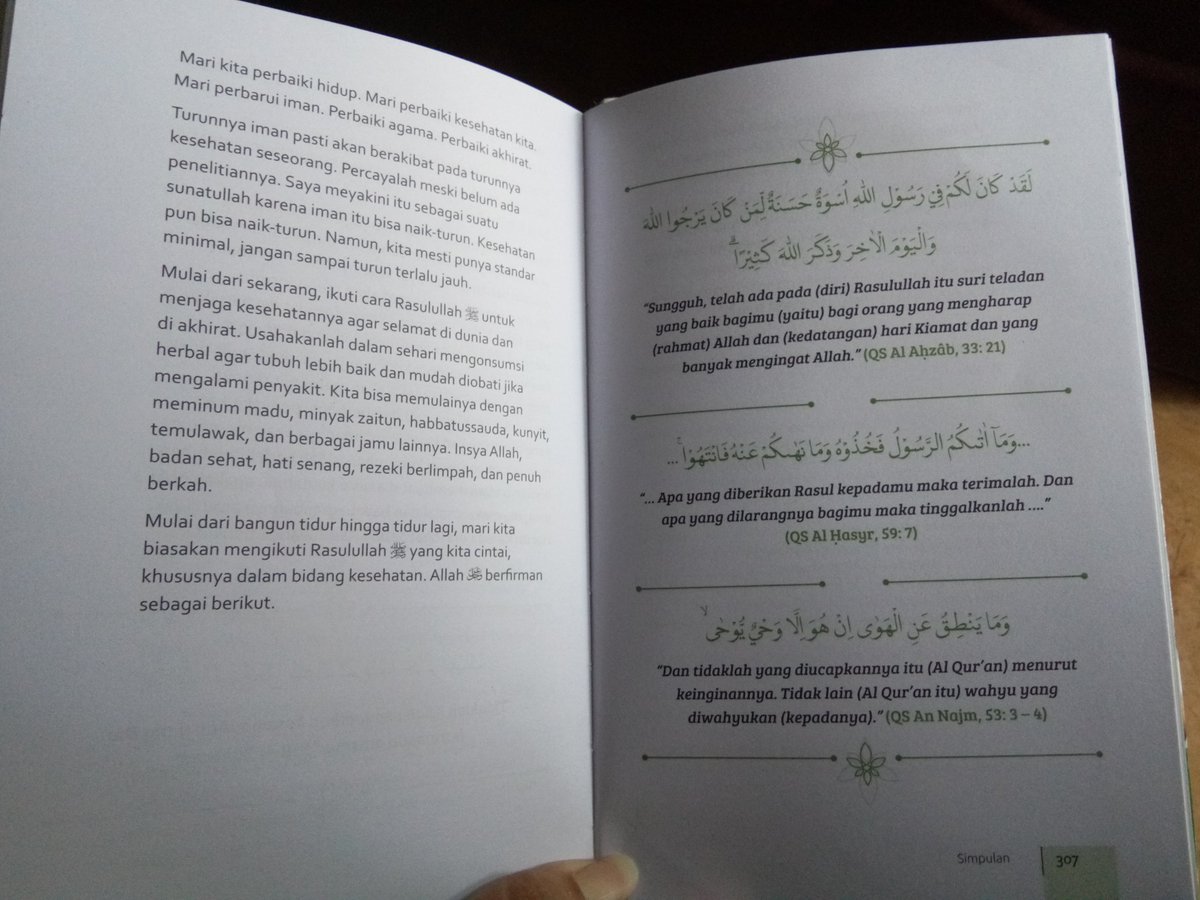 Mari kita perbaiki hidup. Mari perbaiki kesehatan kita.
Mari perbarui iman. Perbaiki agama. Perbaiki akhirat.
Turunnya iman pasti akan berakibat pada turunnya
kesehatan seseorang. Percayalah meski belum ada
penelitiannya. Saya meyakini itu sebagai suatu
sunatullah karena iman itu bisa naik-turun. Kesehatan
pun bisa naik-turun. Namun, kita mesti punya standar
minimal, jangan sampai turun terlalu jauh.
Mulai dari sekarang, ikuti cara Rasulullah ﷺ untuk
menjaga kesehatannya agar selamat di dunia dan
di akhirat. Usahakanlah dalam sehari mengonsumsi
herbal agar tubuh lebih baik dan mudah diobati jika
mengalami penyakit. Kita bisa memulainya dengan
meminum madu, minyak zaitun, habbatussauda, kunyit,
temulawak, dan berbagai jamu lainnya. Insya Allah,
badan sehat, hati senang, rezeki berlimpah, dan penuh
berkah.
Mulai dari bangun tidur hingga tidur lagi, mari kita
biasakan mengikuti Rasulullah ﷺ yang kita cintai,
khususnya dalam bidang kesehatan. Allah ﷻ berfirman
sebagai berikut.
لَقَدْ كَانَ لَكُمْ فِيْ رَسُوْلِ اللّٰهِ اُسْوَةٌ حَسَنَةٌ لِّمَنْ كَانَ يَرْجُوا اللّٰهَ
وَالْيَوْمَ الْاٰخِرَ وَذَكَرَ اللّٰهَ كَثِيْرًاۗ
“Sungguh, telah ada pada (diri) Rasulullah itu suri teladan
yang baik bagimu (yaitu) bagi orang yang mengharap
(rahmat) Allah dan (kedatangan) hari Kiamat dan yang
banyak mengingat Allah.” (QS Al Aḥzâb, 33: 21)
...وَمَآ اٰتٰىكُمُ الرَّسُوْلُ فَخُذُوْهُ وَمَا نَهٰىكُمْ عَنْهُ فَانْتَهُوْاۚ ...
“... Apa yang diberikan Rasul kepadamu maka terimalah. Dan
apa yang dilarangnya bagimu maka tinggalkanlah ....”
(QS Al Ḥasyr, 59: 7)
وَمَا يَنْطِقُ عَنِ الْهَوٰى اِنْ هُوَ اِلَّا وَحْيٌ يُّوْحٰىۙ
“Dan tidaklah yang diucapkannya itu (Al Qur’an) menurut
keinginannya. Tidak lain (Al Qur’an itu) wahyu yang
diwahyukan (kepadanya).” (QS An Najm, 53: 3 – 4)
Simpulan 307